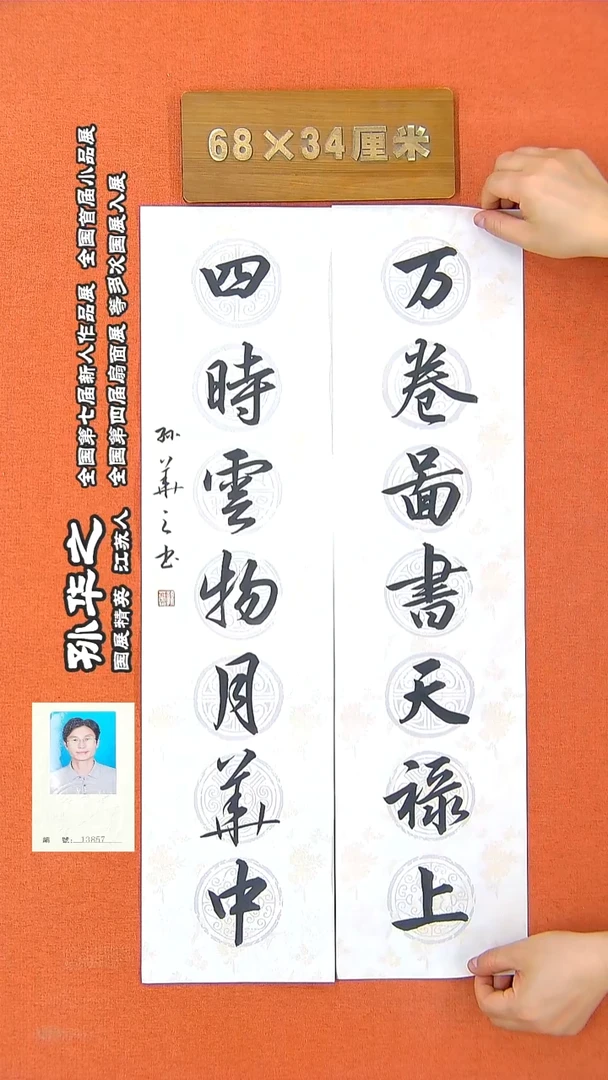 68×34厘米
万卷图書天禄上
四時雲物月華中
孙華之书
全国第七届新人作品展 全国首届小品展
全国第四届扇面展 等多次国展入展
孙华之
国展精英 江苏人
編 號: 13857